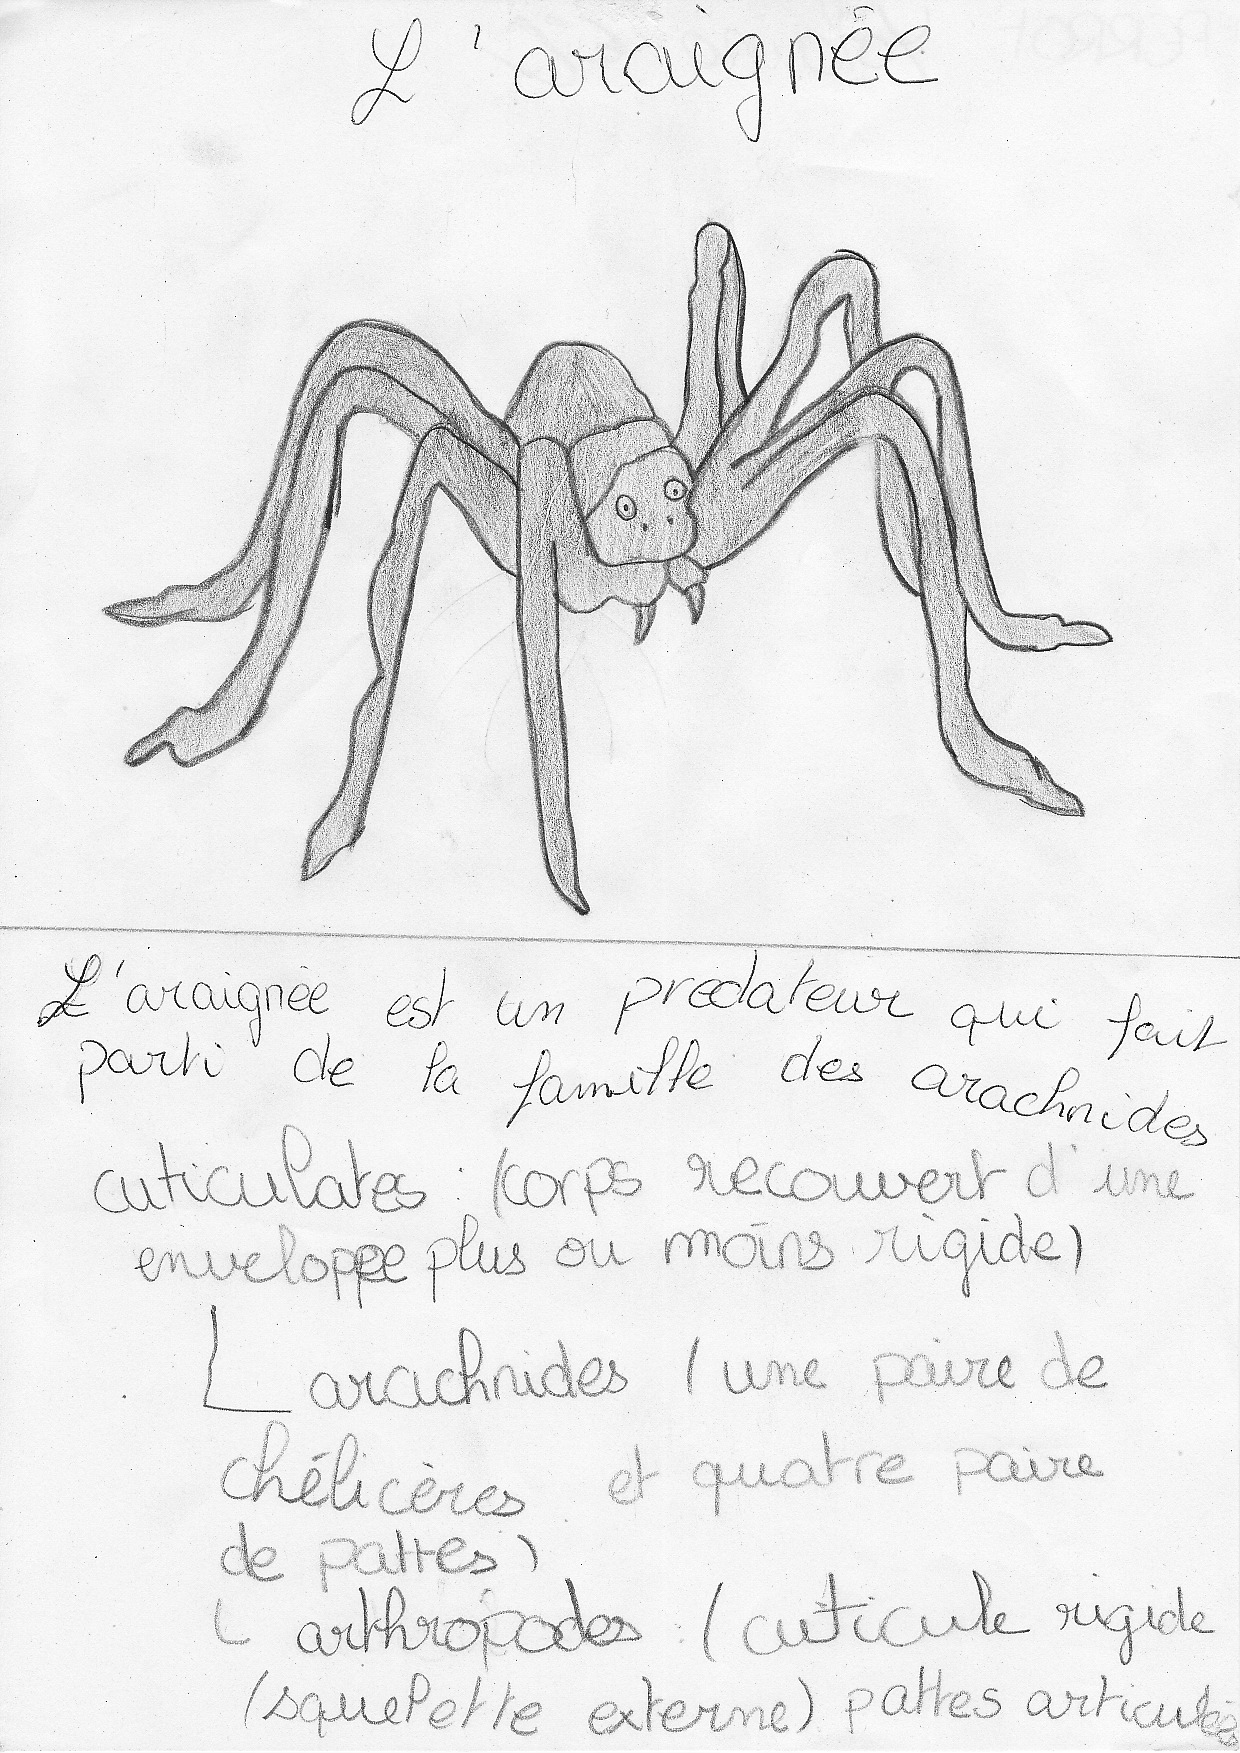 L'araignée
L'araignée est un prédateur qui fait
parti de la famille des arachnides
cuticulates : (corps recouvert d'une
enveloppe plus ou moins rigide)
arachnides (une paire de
chélicères et quatre paire
de pattes)
arthropodes : (cuticule rigide
(squelette externe) pattes articulées